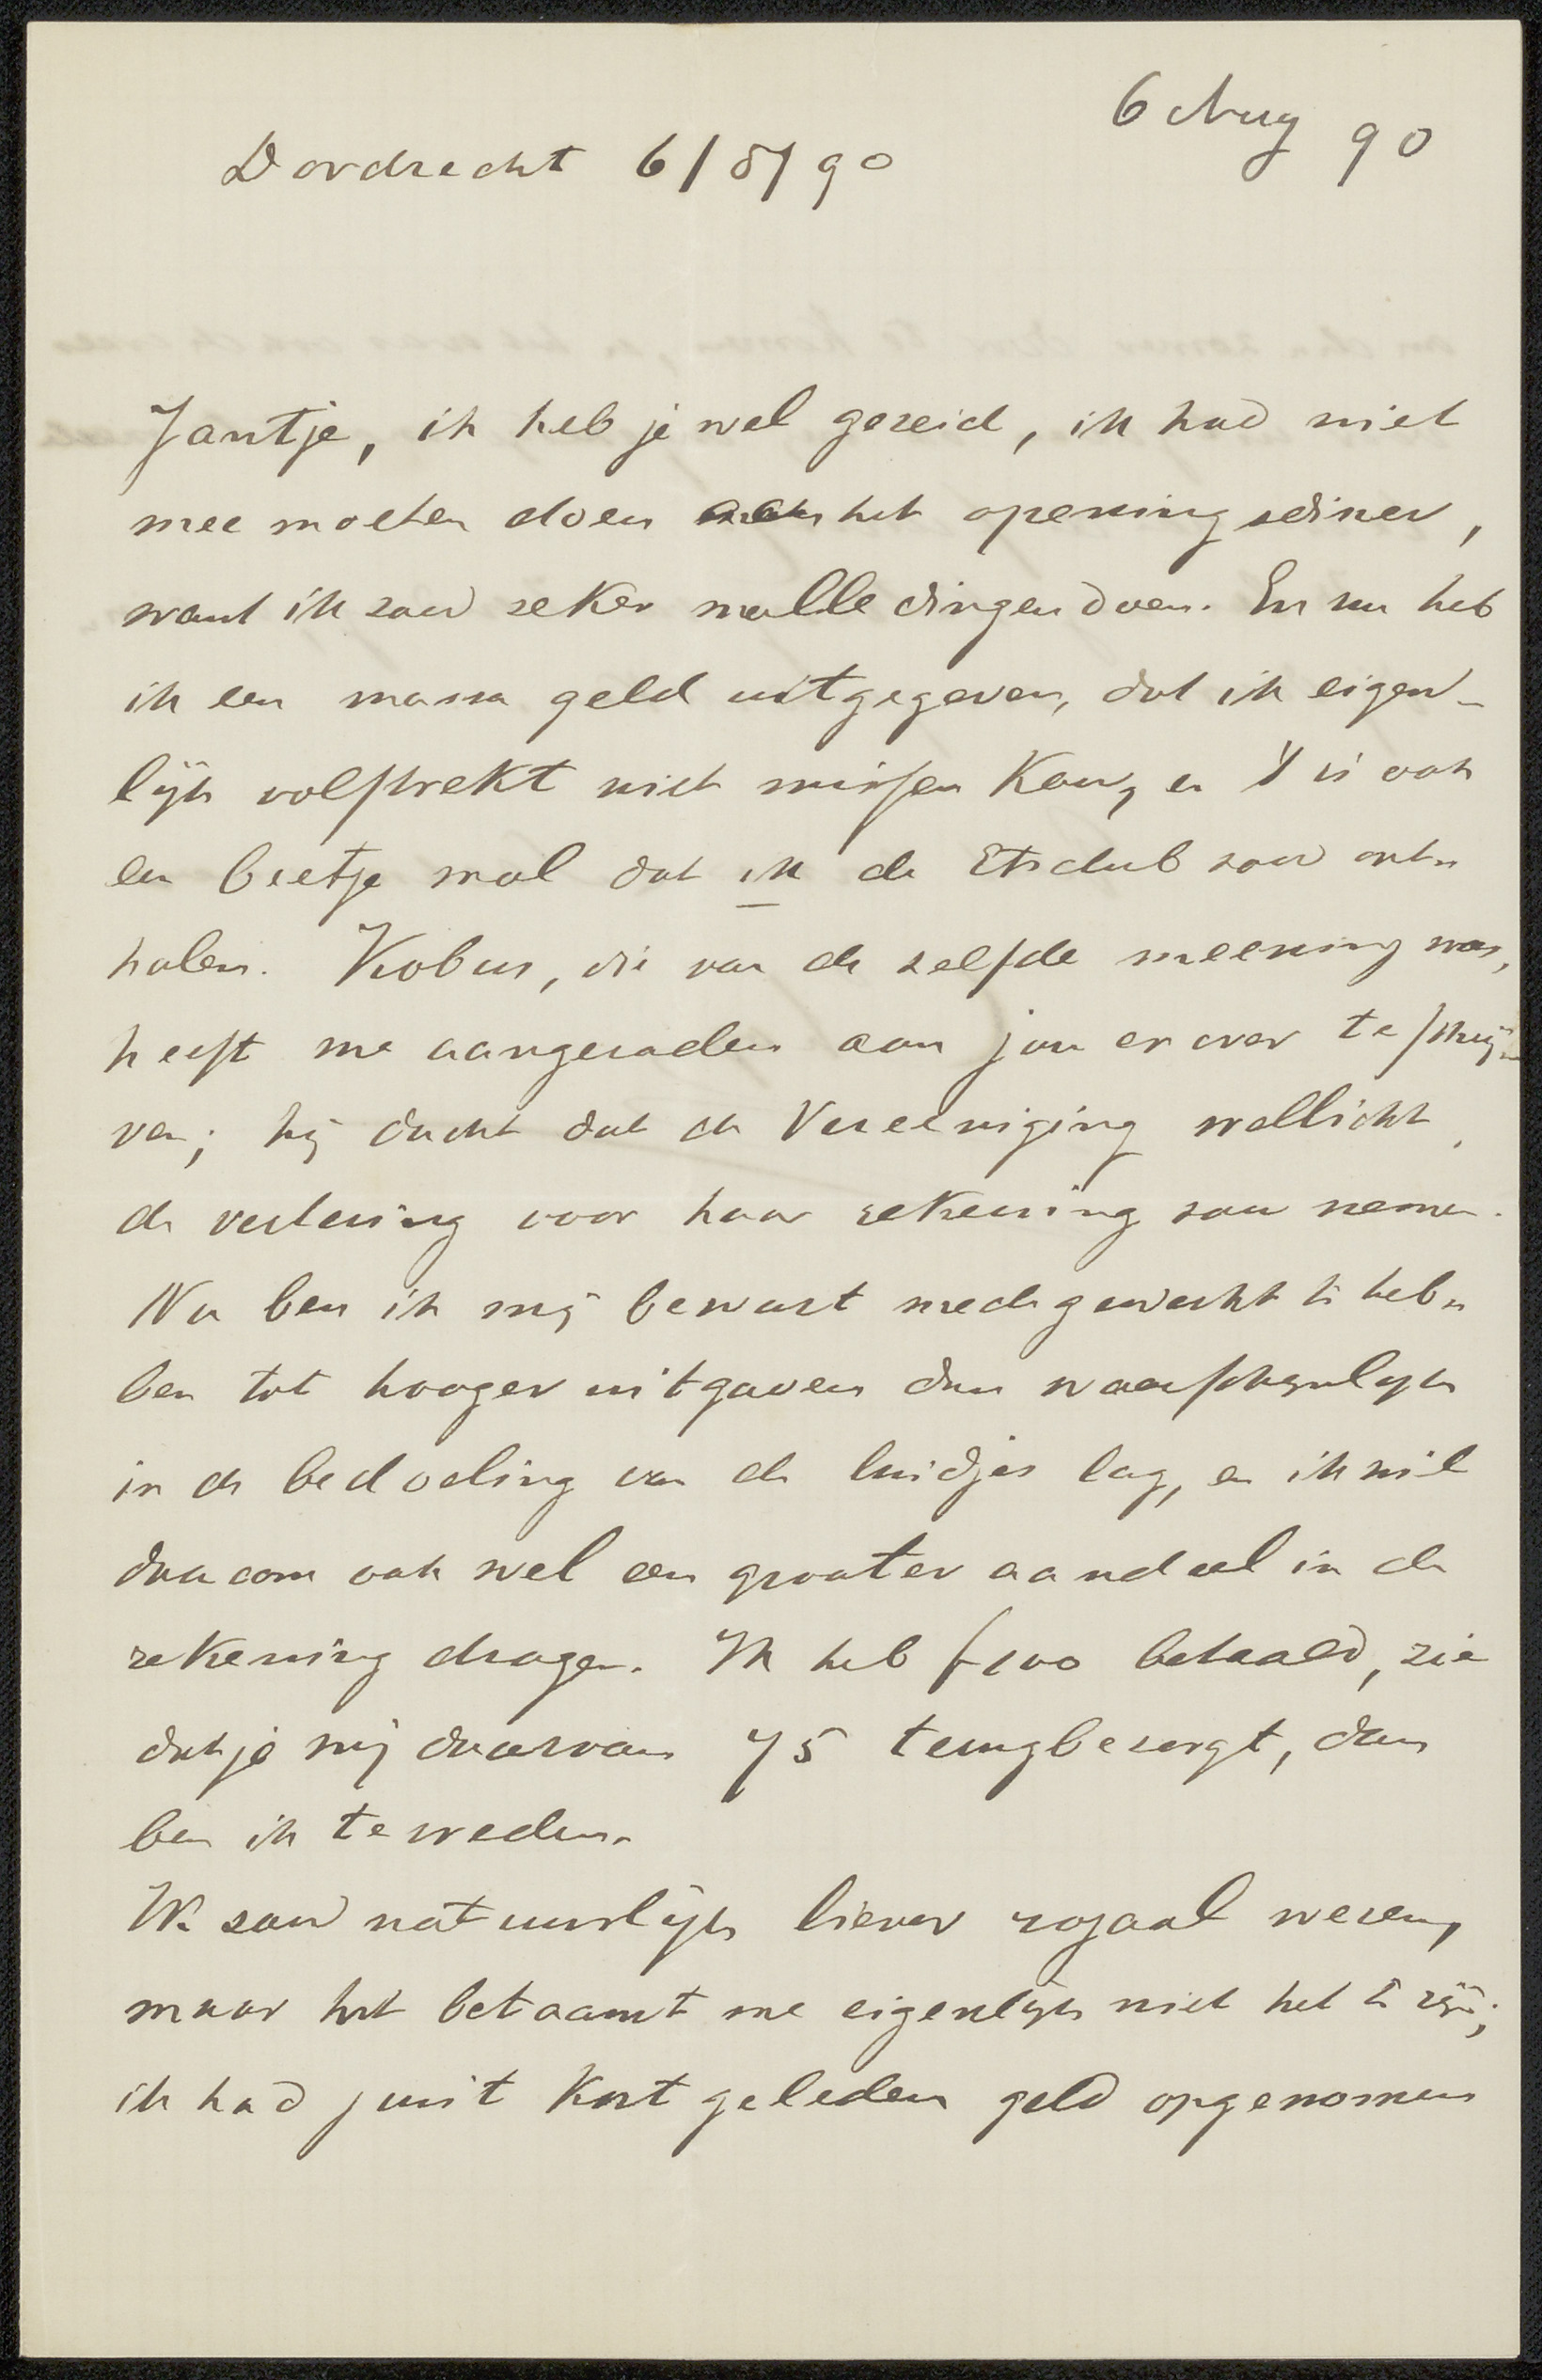 6 Aug 90
Dordrecht 6/8/90
Jantje, ik heb je wel gezeid, ik had niet
mee moeten doen aan het openingsdiner,
want ik zou zeker malle dingen doen. En nu heb
ik een massa geld uitgegeven, dat ik eigen-
lijk volstrekt niet missen kan, en 't is ook
een beetje mal dat ik de Etsclub zou ont-
halen. Kobus, die van de zelfde meening was,
heeft me aangeraden aan jou er over te schrij-
ven; hij dacht dat de Vereeniging wellicht
de vertering voor haar rekening zou nemen.
Nu ben ik mij bewust medegewerkt te heb-
ben tot hooger uitgaven dan waarschijnlijk
in de bedoeling van de luidjes lag, en ik wil
daarom ook wel een grooter aandeel in de
rekening dragen. Ik heb f100 betaald, zie
dat je mij daarvan 75 terugbezorgt, dan
ben ik tevreden.
Ik zou natuurlijk liever royaal wezen,
maar het betaamt me eigenlijk niet het te zijn;
ik had juist kort geleden geld opgenomen